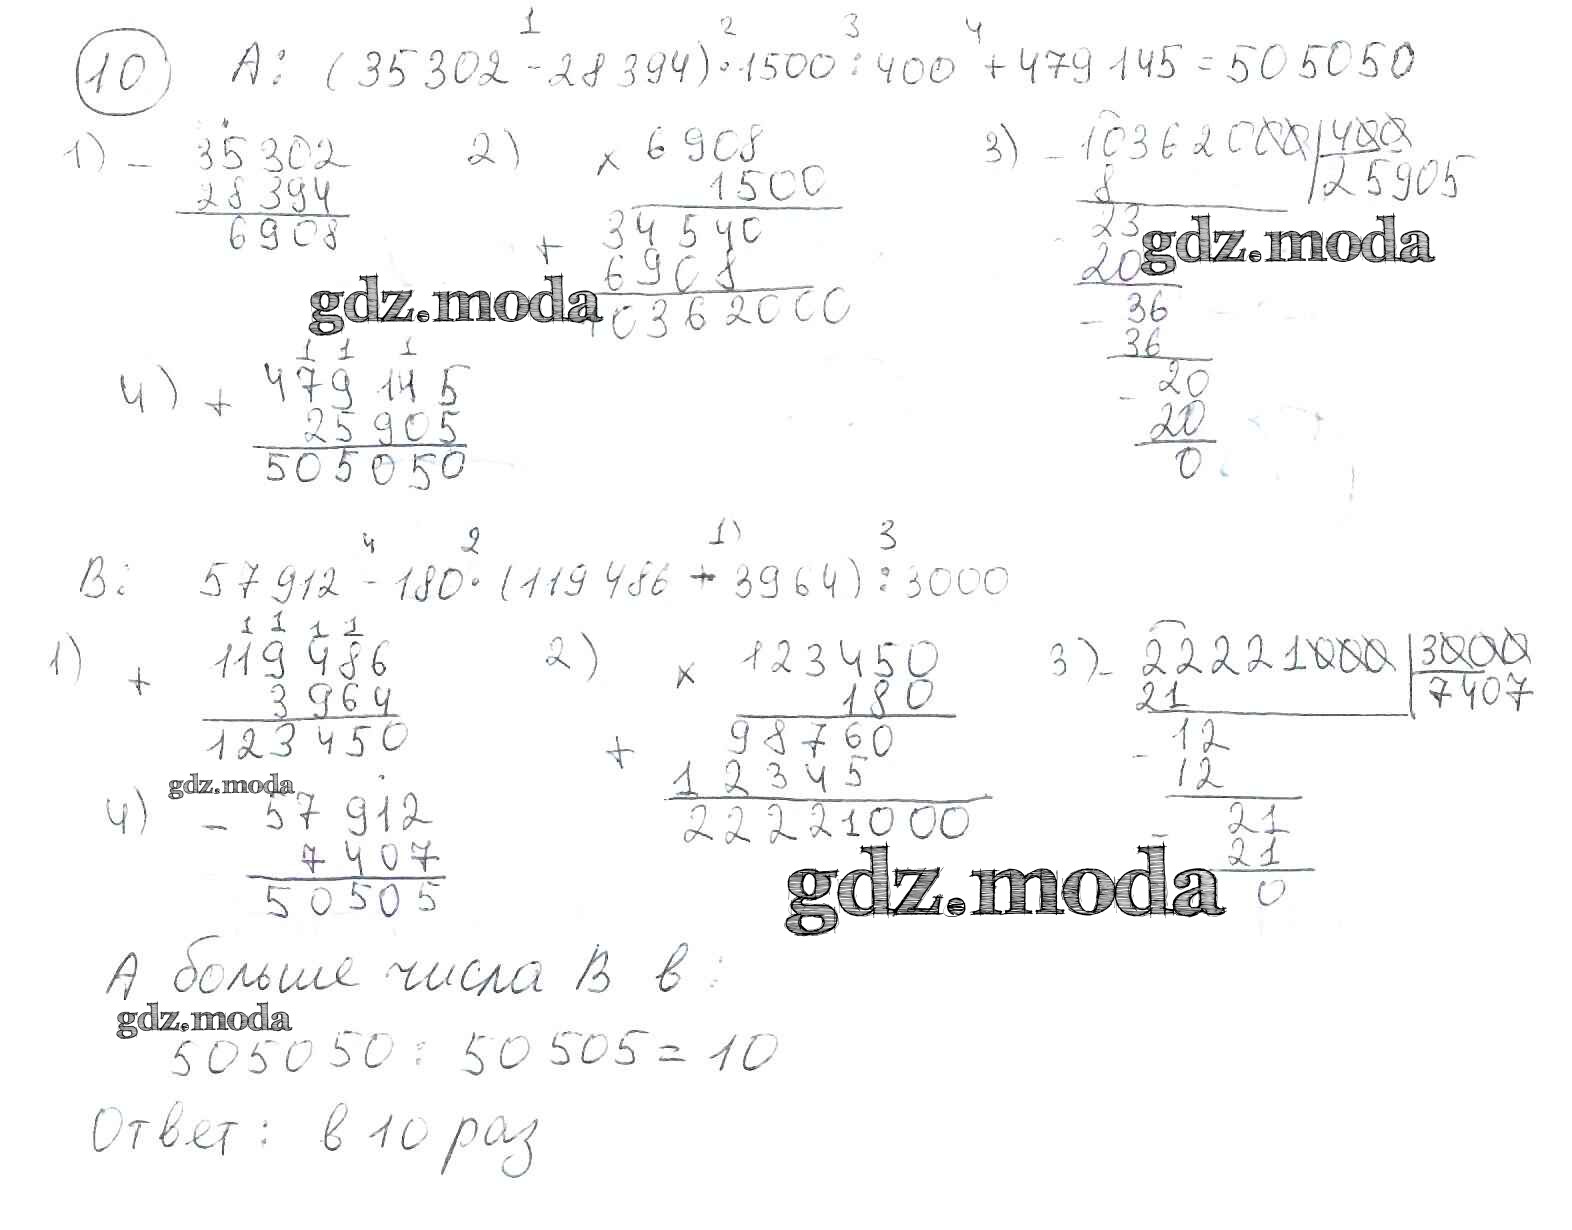 10 А: (35302 - 28394) · 1500 : 400 + 479145 = 505050
1 2 3 4
1) - 35302
28394
6908
2) × 6908
1500
+ 34540
6908
10362000
3) - 10362000 | 400
8 25905
- 23
20
- 36
36
- 20
20
0
gdz.moda
gdz.moda
4) + 479145
1 1 1
25905
505050
В: 57912 - 180 · (119486 + 3964) : 3000
4 2 1) 3
1) + 119486
1 1 1 1
3964
123450
2) × 123450
180
+ 98760
12345
22221000
3) - 22221000 | 3000
21 7407
- 12
12
- 21
21
0
gdz.moda
4) - 57912
7407
50505
gdz.moda
А больше числа В в:
gdz.moda
505050 : 50505 = 10
Ответ: в 10 раз